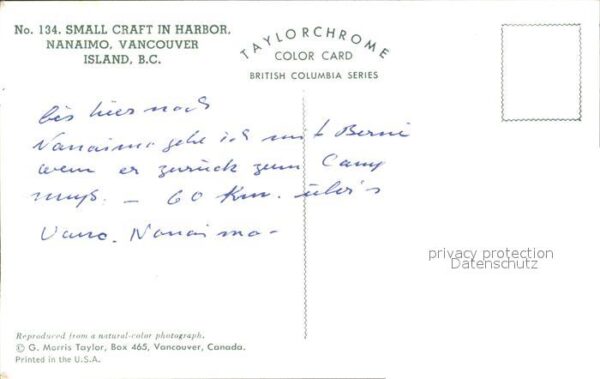 No. 134. SMALL CRAFT IN HARBOR,
NANAIMO, VANCOUVER
ISLAND, B.C.
TAYLORCHROME
COLOR CARD
BRITISH COLUMBIA SERIES
bis hier nach
Nanaimo gehe ich mit Berni
wenn er zurück zum Camp
muß. – 60 Km. über's
Nanaimo –
privacy protection
Datenschutz
Reproduced from a natural-color photograph.
© G. Morris Taylor, Box 465, Vancouver, Canada.
Printed in the U.S.A.